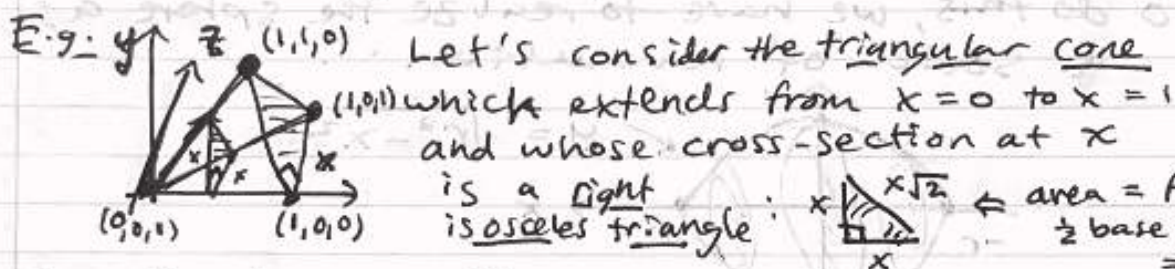 E.g: y z (1,1,0) Let's consider the triangular cone
(1,0,1) which extends from x=0 to x=1
x x x and whose cross-section at x
is a right
isosceles triangle : x x√2 x ⇐ area =
½ base
=
(0,0,1) (1,0,0)